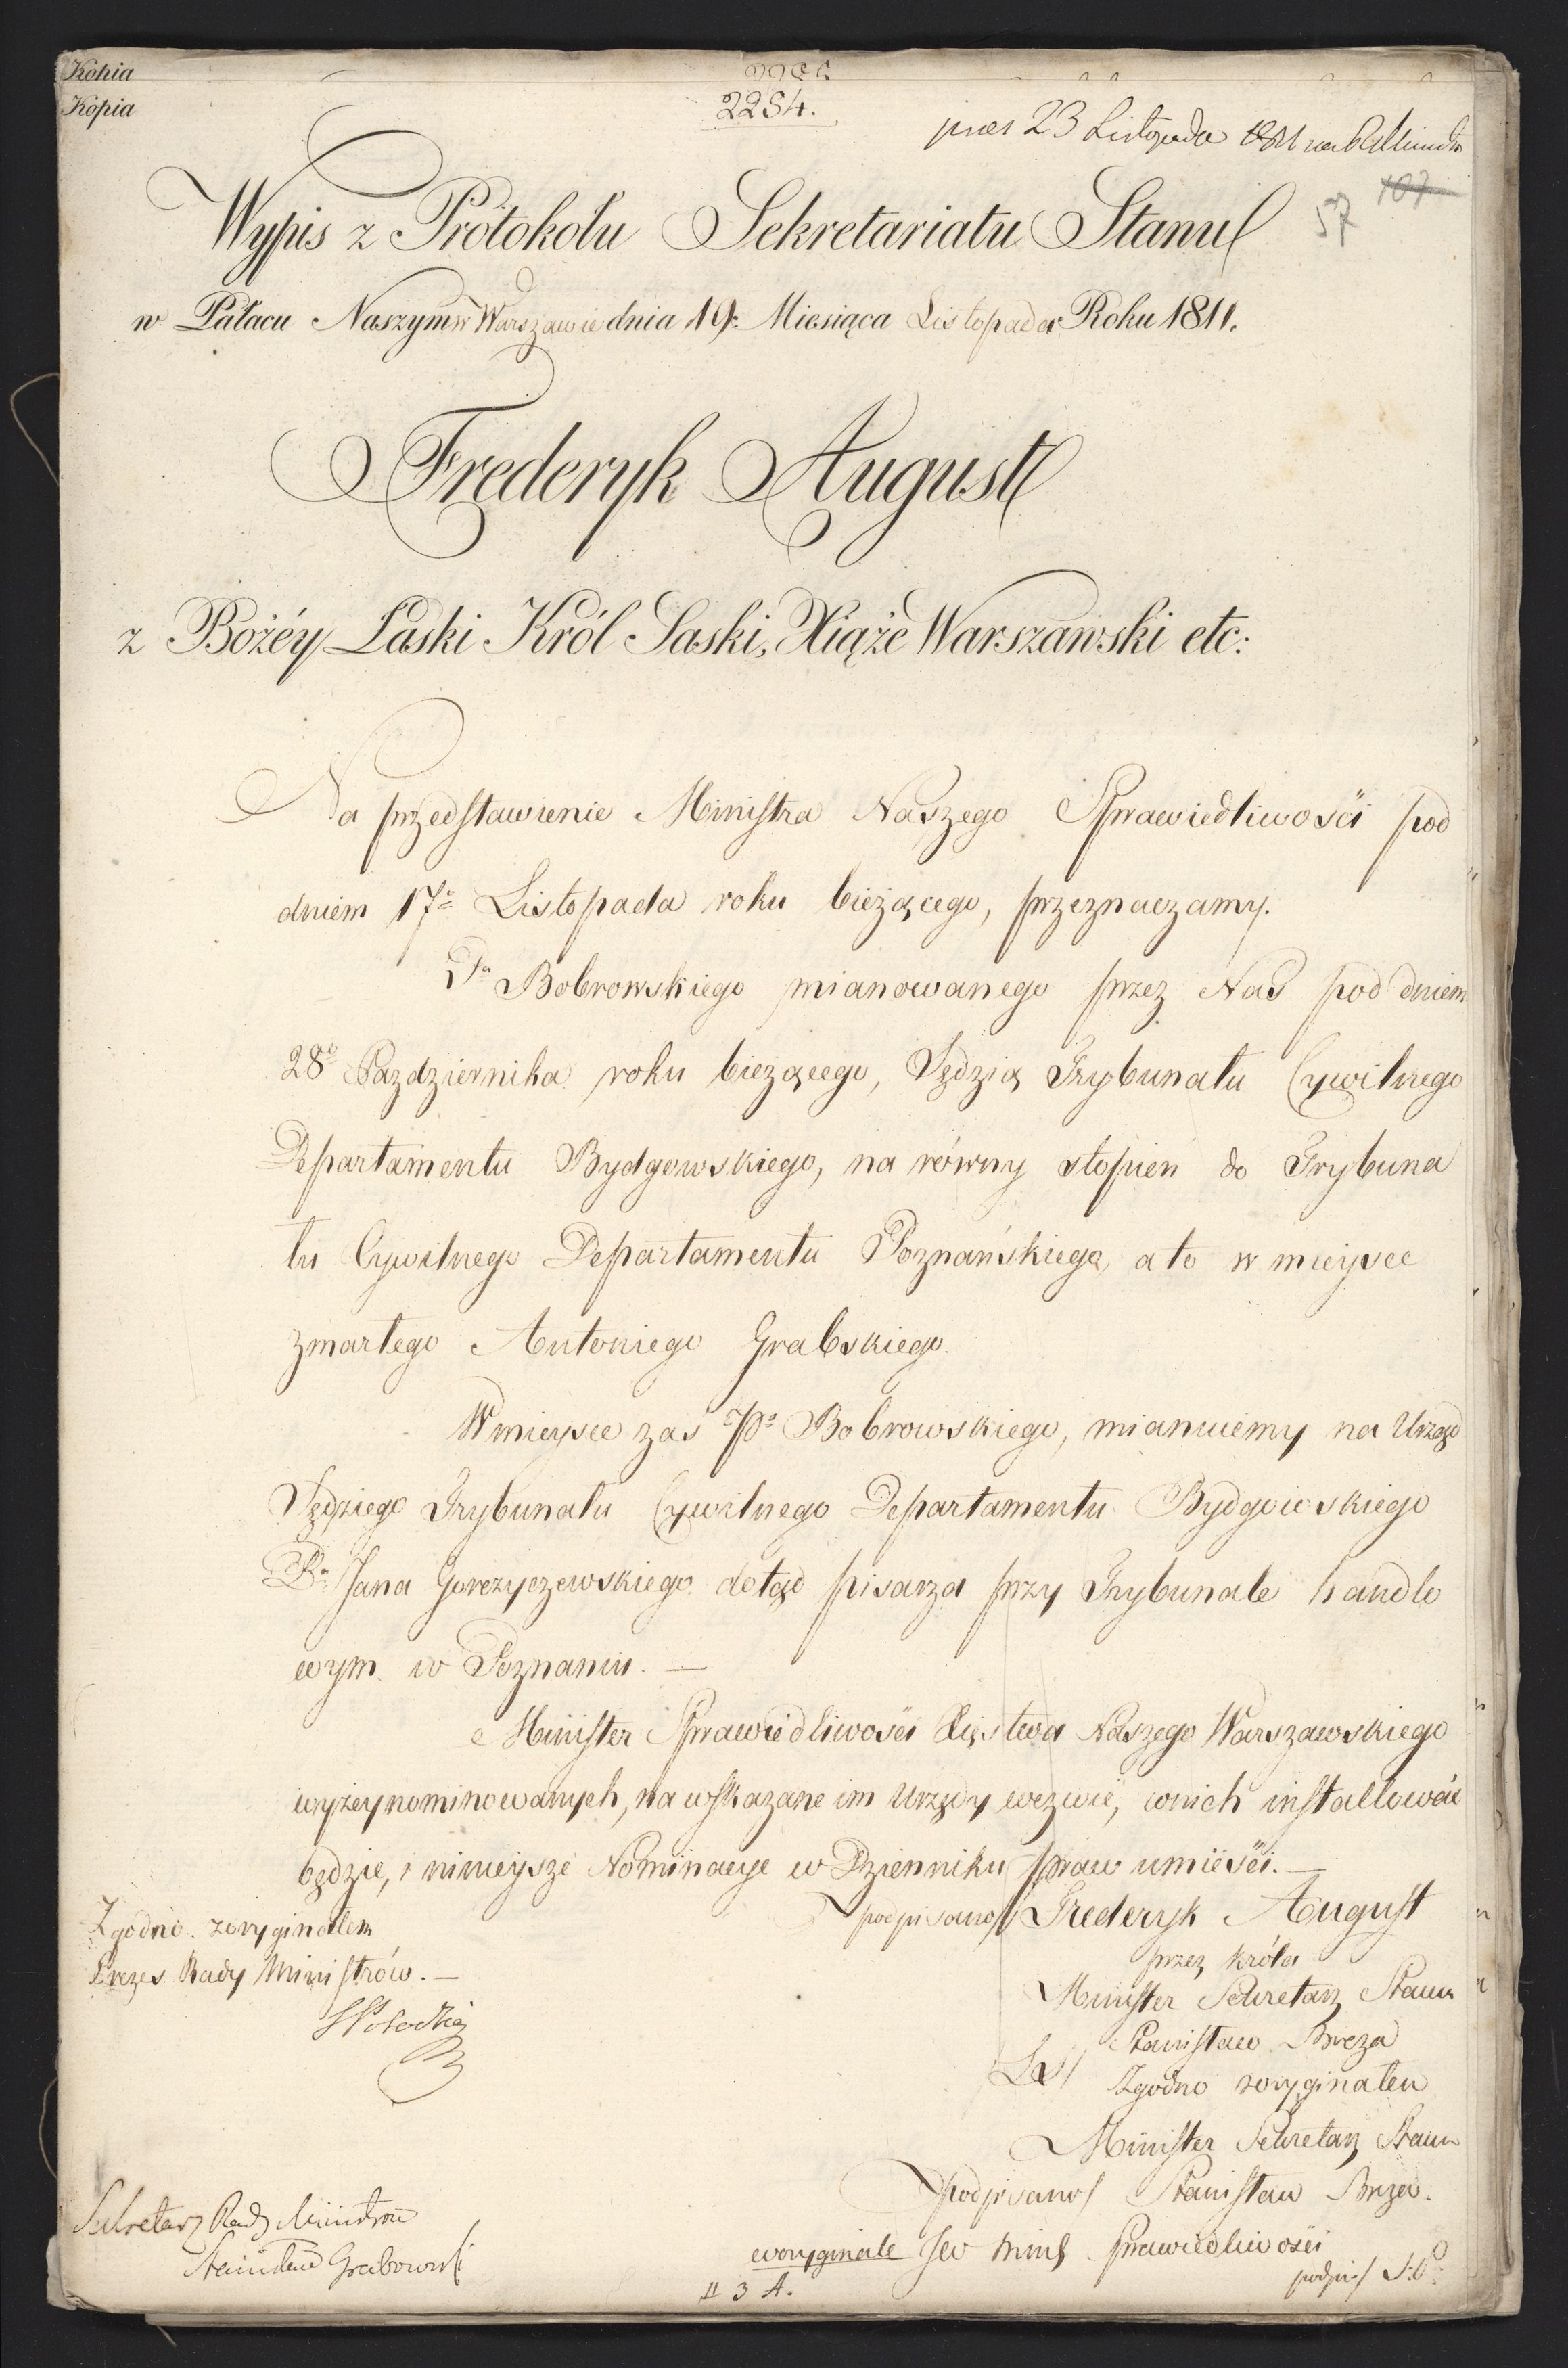 Kopia
Kopia
2254.
pres 23 Listopada 1811
57 107
Wypis z Protokołu Sekretariatu Stanu
w Pałacu Naszym w Warszawie dnia 19. Miesiąca Listopada Roku 1811.
Frederyk August
z Bożéy Łaski Król Saski, Xiąże Warszawski etc:
Na przedstawienie Ministra Naszego Sprawiedliwości pod
dniem 17º Listopada roku bieżącego, przeznaczamy.
Pa Bobrowskiego mianowanego przez Nas pod dniem
28º Pazdziernika roku bieżącego, Sędzią Trybunału Cywilnego
Departamentu Bydgowskiego, na równy stopień do Trybuna
łu Cywilnego Departamentu Poznańskiego, a to w mieysce
zmarłego Antoniego Grabskiego.
W mieysce zaś Pa Bobrowskiego, mianuiemy na Urząd
Sędziego Trybunału Cywilnego Departamentu Bydgowskiego
Pa Jana Gorczyczewskiego dotąd pisarza przy Trybunale handlo
wym w Poznaniu. —
Minister Sprawiedliwości Xięstwa Naszego Warszawskiego
wyżey nominowanych, na wskazane im Urzędy wezwie, w nich installować
będzie, i ninieysze Nominacye w Dzienniku praw umieści. —
podpisano/ Frederyk August
przez Króla
Minister Sekretarz Stanu
Stanisław Breza
LS/ Zgodno z oryginałem
Minister Sekretarz Stanu
podpisano/ Stanisław Breza.
Zgodno z oryginałem
Prezes Rady Ministrów. —
Sekretarz Rady Ministrów
Stanisław Grabowski
w oryginale Sprawiedliwości
podpis/
# 3 A.